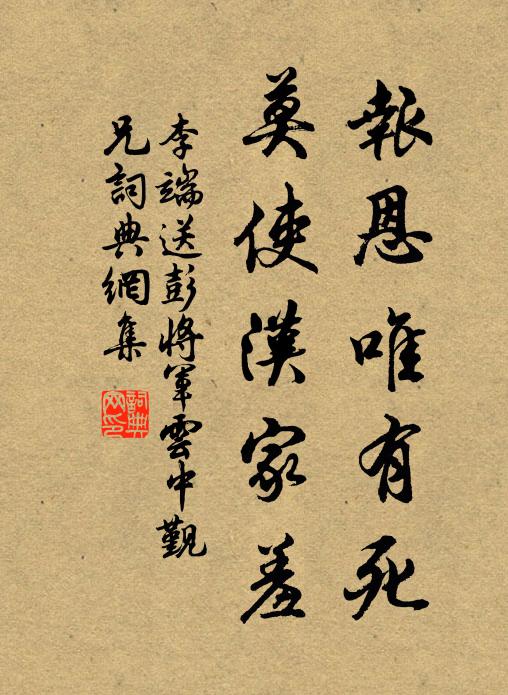 報恩唯有死
莫使漢家羞
李端送彭將軍雲中覲
兄詞典網集
詞典
网印